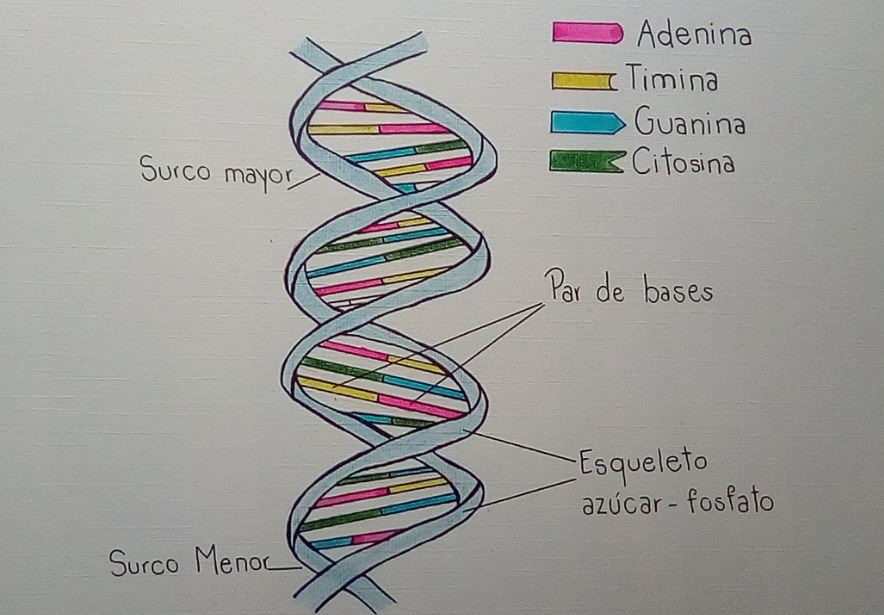 Adenina
Timina
Guanina
Citosina
Surco mayor
Par de bases
Esqueleto
azúcar-fosfato
Surco Menor